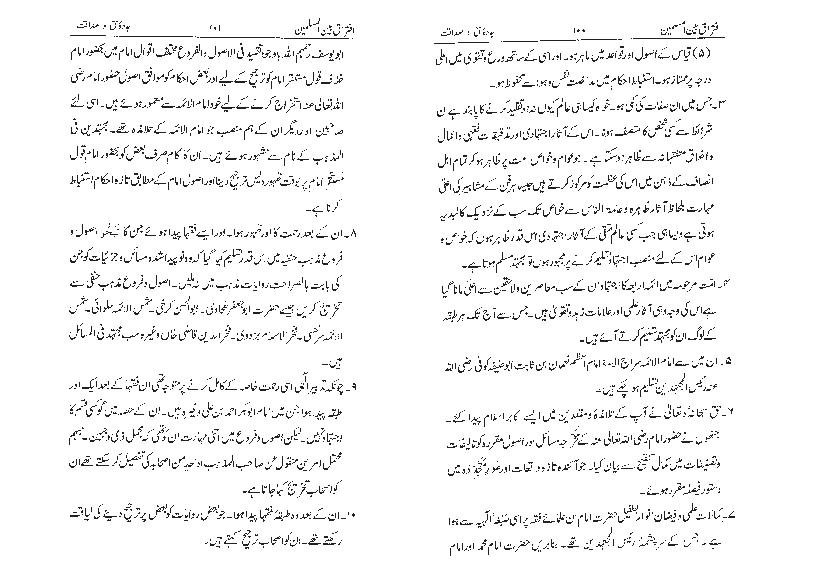 افتراق بین المسلمین ۱۰۰ جادۂ حق و صداقت
(۵) قیاس کے اصول اور قواعد میں ماہر ہو۔ اور اسی کے ساتھ ورع و تقویٰ میں اعلیٰ
درجہ پر ممتاز ہو۔ استنباط احکام میں مداخلت نفس و ہوا سے محفوظ ہو۔
۳۔ جس میں ان صفات کی کمی ہو۔ خواہ کیسا ہی عالم کیوں نہ ہو تقلید کرنے کا پابند ہے ان
شرائط سے کسی شخص کا متصف ہونا۔ اس کے آثار اجتہادی اور تدقیقات فقہی و اعمال
و اخلاق متقیانہ سے ظاہر ہو سکتا ہے۔ جو عوام و خواص امت پر ظاہر ہو کر تمام اہل
انصاف کے ذہن میں اس کی عظمت کو مرکوز کرتے ہیں جیسا ہر فن کے مشاہیر کی اعلیٰ
مہارت بلحاظ آثار ظاہرہ و عامۃ الناس سے خواص تک سب کے نزدیک کالبدیہہ
ہوتی ہے ویسا ہی جب کسی عالم متقی کے آثار اجتہادی اس قدر ظاہر ہوں کہ خواص و
عوام اس کے لئے منصب اجتہاد تسلیم کرنے پر مجبور ہوں تو مجتہد مسلم ہوتا ہے۔
۴۔ امت مرحومہ میں ائمہ اربعہ کا اجتہاد ان کے سب معاصرین و لاحقین سے اعلیٰ مانا گیا
ہے اس کی وجہ وہی آثار علمی اور علامات زہد و تقویٰ ہیں۔ جس سے آج تک ہر طبقہ
کے لوگ ان کو مجتہد تسلیم کرتے آئے ہیں۔
۵۔ ان میں سے امام الائمہ سراج الامہ امام اعظم نعمان بن ثابت ابو حنیفہ کوفی رضی اللہ
عنہ رئیس المجتہدین تسلیم ہو چکے ہیں۔
۶۔ حق سبحانہ و تعالیٰ نے آپ کے تلامذہ و مقلدین میں ایسے اکابر اسلام پیدا کئے۔
جنھوں نے حضور امام رضی اللہ تعالیٰ عنہ کے تخریجہ مسائل اور اصول مقررہ کو تالیفات
و تصنیفات میں کمال تنقیح سے بیان کیا۔ جو آئندہ تازہ واقعات اور امور متجددہ میں
دستور فیصلہ مقرر ہوئے۔
۷۔ کمالات علمی و فیضان انوار بطفیل حضرت امام ان علمائے فقہ پر اسی صبغۃ الٰہیہ سے ہوا
ہے۔ جس کے سرچشمہ رئیس المجتہدین تھے۔ بنابریں حضرت امام محمد اور امام
افتراق بین المسلمین ۱۰۱ جادۂ حق و صداقت
ابو یوسف رحمہم اللہ باوجود تقید فی الاصول والفروع مختلف اقوال امام میں بحضور امام
خلاف قول مستقر امام کو ترجیح کے لیے اور بعض احکام کو موافق اصول حضور امام رضی
اللہ تعالیٰ عنہ استخراج کرنے کے لیے خود امام الائمہ سے مامور ہوئے ہیں۔ اسی لئے
صاحبین اور دیگر ان کے ہم منصب جو امام الائمہ کے تلامذہ تھے۔ مجتہدین فی
المذہب کے نام سے مشہور ہوئے ہیں۔ ان کا کام صرف بعض کو بحضور امام قول
مستقر امام پر بوقت ظہور دلیل ترجیح دینا اور اصول امام کے مطابق تازہ احکام استنباط
کرنا ہے۔
۸۔ ان کے بعد رحمت کا اور ظہور ہوا۔ اور ایسے فقہا پیدا ہوئے جن کا تبحر اصول و
فروع مذہب حنفیہ میں اس قدر تسلیم کیا گیا کہ وہ نو پیدا شدہ مسائل و جزئیات کو جن
کی بابت بالصراحت روایات مذہب میں نہ ملیں۔ اصول و فروع مذہب حنفی سے
تخریج کریں جیسے حضرت ابو جعفر طحاوی۔ ابو الحسن کرخی۔ شمس الائمہ حلوائی۔ شمس
الائمہ سرخسی۔ فخر الاسلام بزدوی۔ فخر الدین قاضی خاں وغیرہ سب مجتہد فی المسائل
ہیں۔
۹۔ چونکہ تدبیر الٰہی اسی رحمت خاصہ کے کامل کرنے پر متوجہ تھی ان فقہا کے بعد ایک اور
طبقہ پیدا ہوا جن میں امام ابو بکر احمد بن علی وغیرہ ہیں۔ ان کے حصہ میں گو کسی قسم کا
اجتہاد نہیں۔ لیکن اصول و فروع میں اتنی مہارت ان کو تھی کہ مجمل ذی وجہین۔ مبہم
محتمل امرین منقول عن صاحب المذہب او احد من اصحابہ کی تفصیل کر سکتے تھے ان
کو اصحاب تخریج کہا جاتا ہے۔
۱۰۔ ان کے بعد وہ طبقہ فقہا پیدا ہوا۔ جو بعض روایات کو بعض پر ترجیح دینے کی لیاقت
رکھتے تھے۔ ان کو اصحاب ترجیح کہتے ہیں۔